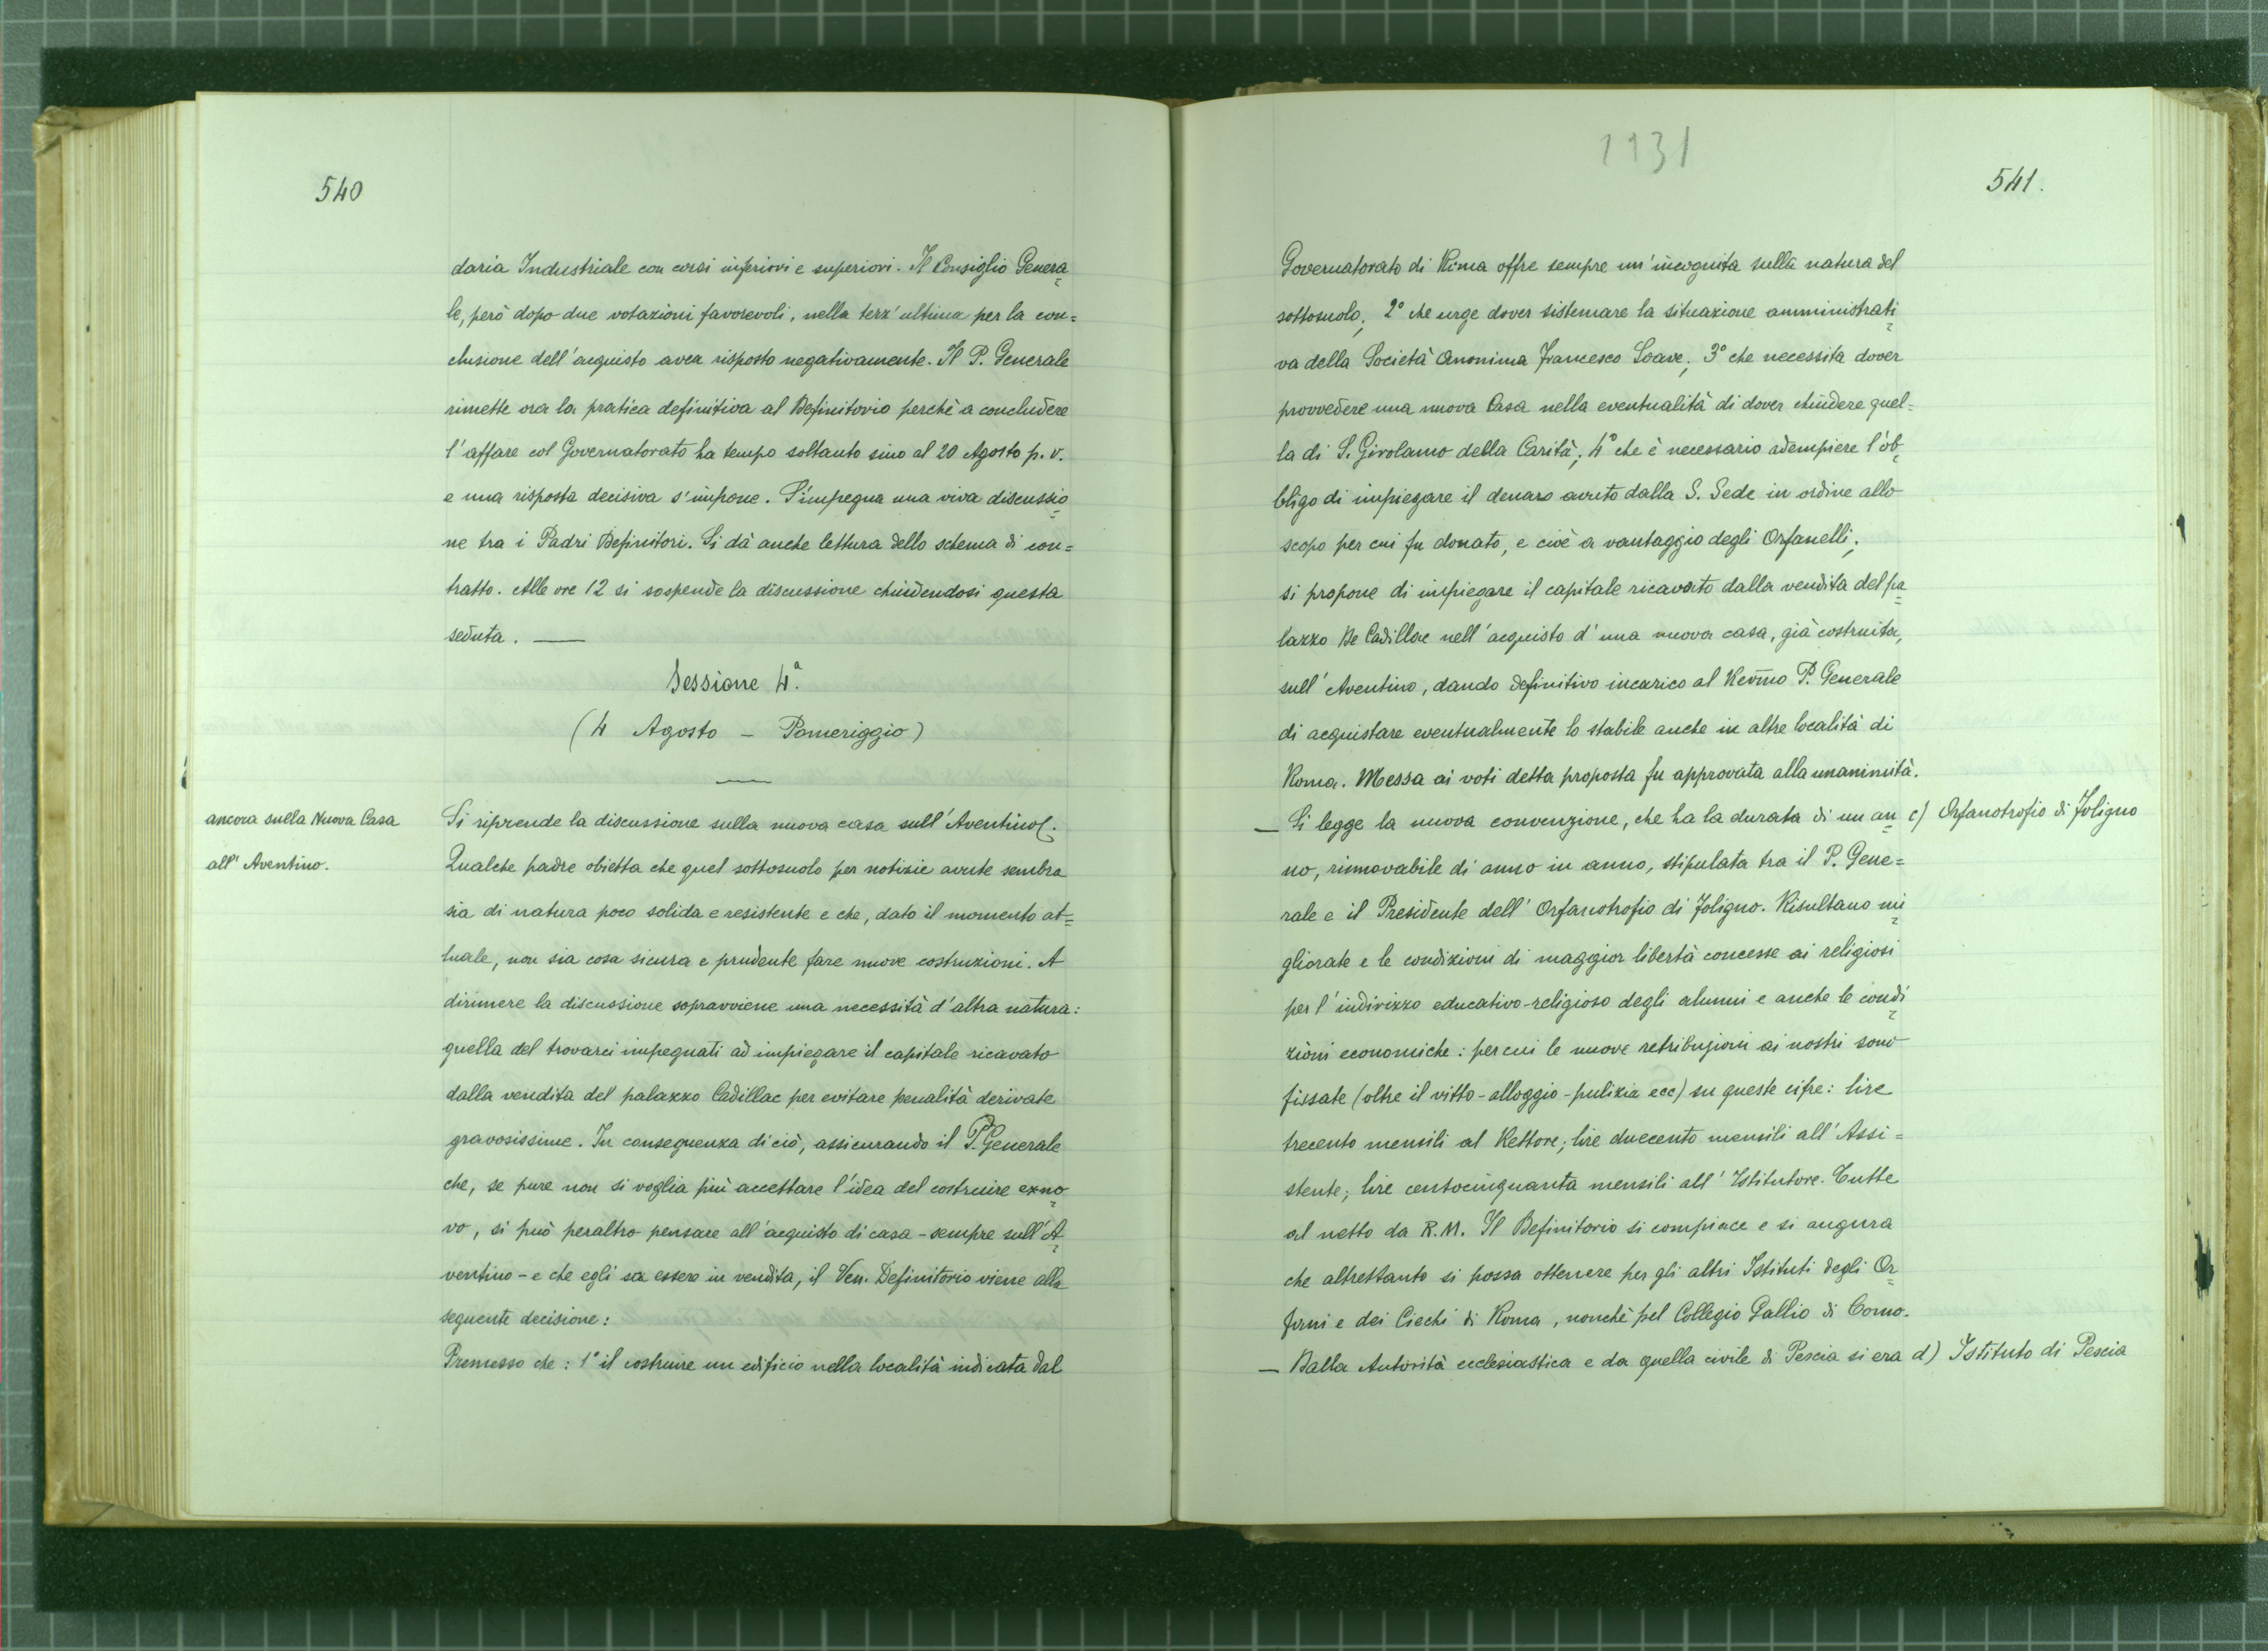 540
daria Industriale con corsi inferiori e superiori. Il Consiglio Genera=
le, però dopo due votazioni favorevoli, nella terz'ultima per la con=
clusione dell'acquisto avea risposto negativamente. Il P. Generale
rimette ora la pratica definitiva al Definitorio perchè a concludere
l'affare col Governatorato ha tempo soltanto sino al 20 Agosto p. v.
e una risposta decisiva s'impone. S'impegna una viva discussio=
ne tra i Padri Definitori. Si dà anche lettura dello schema di con=
tratto. Alle ore 12 si sospende la discussione chiudendosi questa
seduta. —
Sessione 4ª.
(4 Agosto – Pomeriggio)
ancora sulla Nuova Casa
all'Aventino.
Si riprende la discussione sulla nuova casa sull'Aventino.
Qualche padre obietta che quel sottosuolo per notizie avute sembra
sia di natura poco solida e resistente e che, dato il momento at=
tuale, non sia cosa sicura e prudente fare nuove costruzioni. A
dirimere la discussione sopravviene una necessità d'altra natura:
quella del trovarci impegnati ad impiegare il capitale ricavato
dalla vendita del palazzo Cadillac per evitare penalità derivate
gravosissime. In conseguenza di ciò, assicurando il P. Generale
che, se pure non si voglia più accettare l'idea del costruire exno=
vo, si può peraltro pensare all'acquisto di casa – sempre sull'A=
ventino – e che egli sa essere in vendita, il Ven. Definitorio viene alla
seguente decisione:
Premesso che: 1° il costruire un edificio nella località indicata dal
1931
541.
Governatorato di Roma offre sempre un'incognita sulla natura del
sottosuolo; 2° che urge dover sistemare la situazione amministrati=
va della Società Anonima Francesco Soave; 3° che necessita dover
provvedere una nuova Casa nella eventualità di dover chiudere quel=
la di S. Girolamo della Carità; 4° che è necessario adempiere l'ob=
bligo di impiegare il denaro avuto dalla S. Sede in ordine allo
scopo per cui fu donato, e cioè a vantaggio degli Orfanelli;
si propone di impiegare il capitale ricavato dalla vendita del pa=
lazzo De Cadillac nell'acquisto d'una nuova casa, già costruita,
sull'Aventino, dando definitivo incarico al Rev̅mo P. Generale
di acquistare eventualmente lo stabile anche in altre località di
Roma. Messa ai voti detta proposta fu approvata alla unanimità.
— Si legge la nuova convenzione, che ha la durata di un an=
c) Orfanotrofio di Foligno
no, rinnovabile di anno in anno, stipulata tra il P. Gene=
rale e il Presidente dell'Orfanotrofio di Foligno. Risultano mi=
gliorate e le condizioni di maggior libertà concesse ai religiosi
per l'indirizzo educativo-religioso degli alunni e anche le condi=
zioni economiche: per cui le nuove retribuzioni ai nostri sono
fissate (oltre il vitto-alloggio-pulizia ecc) su queste cifre: lire
trecento mensili al Rettore; lire duecento mensili all'Assi=
stente; lire centocinquanta mensili all'Istitutore. Tutte
al netto da R.M. Il Definitorio si compiace e si augura
che altrettanto si possa ottenere per gli altri Istituti degli Or=
fani e dei Ciechi di Roma, nonchè pel Collegio Gallio di Como.
— Dalla Autorità ecclesiastica e da quella civile di Pescia si era
d) Istituto di Pescia